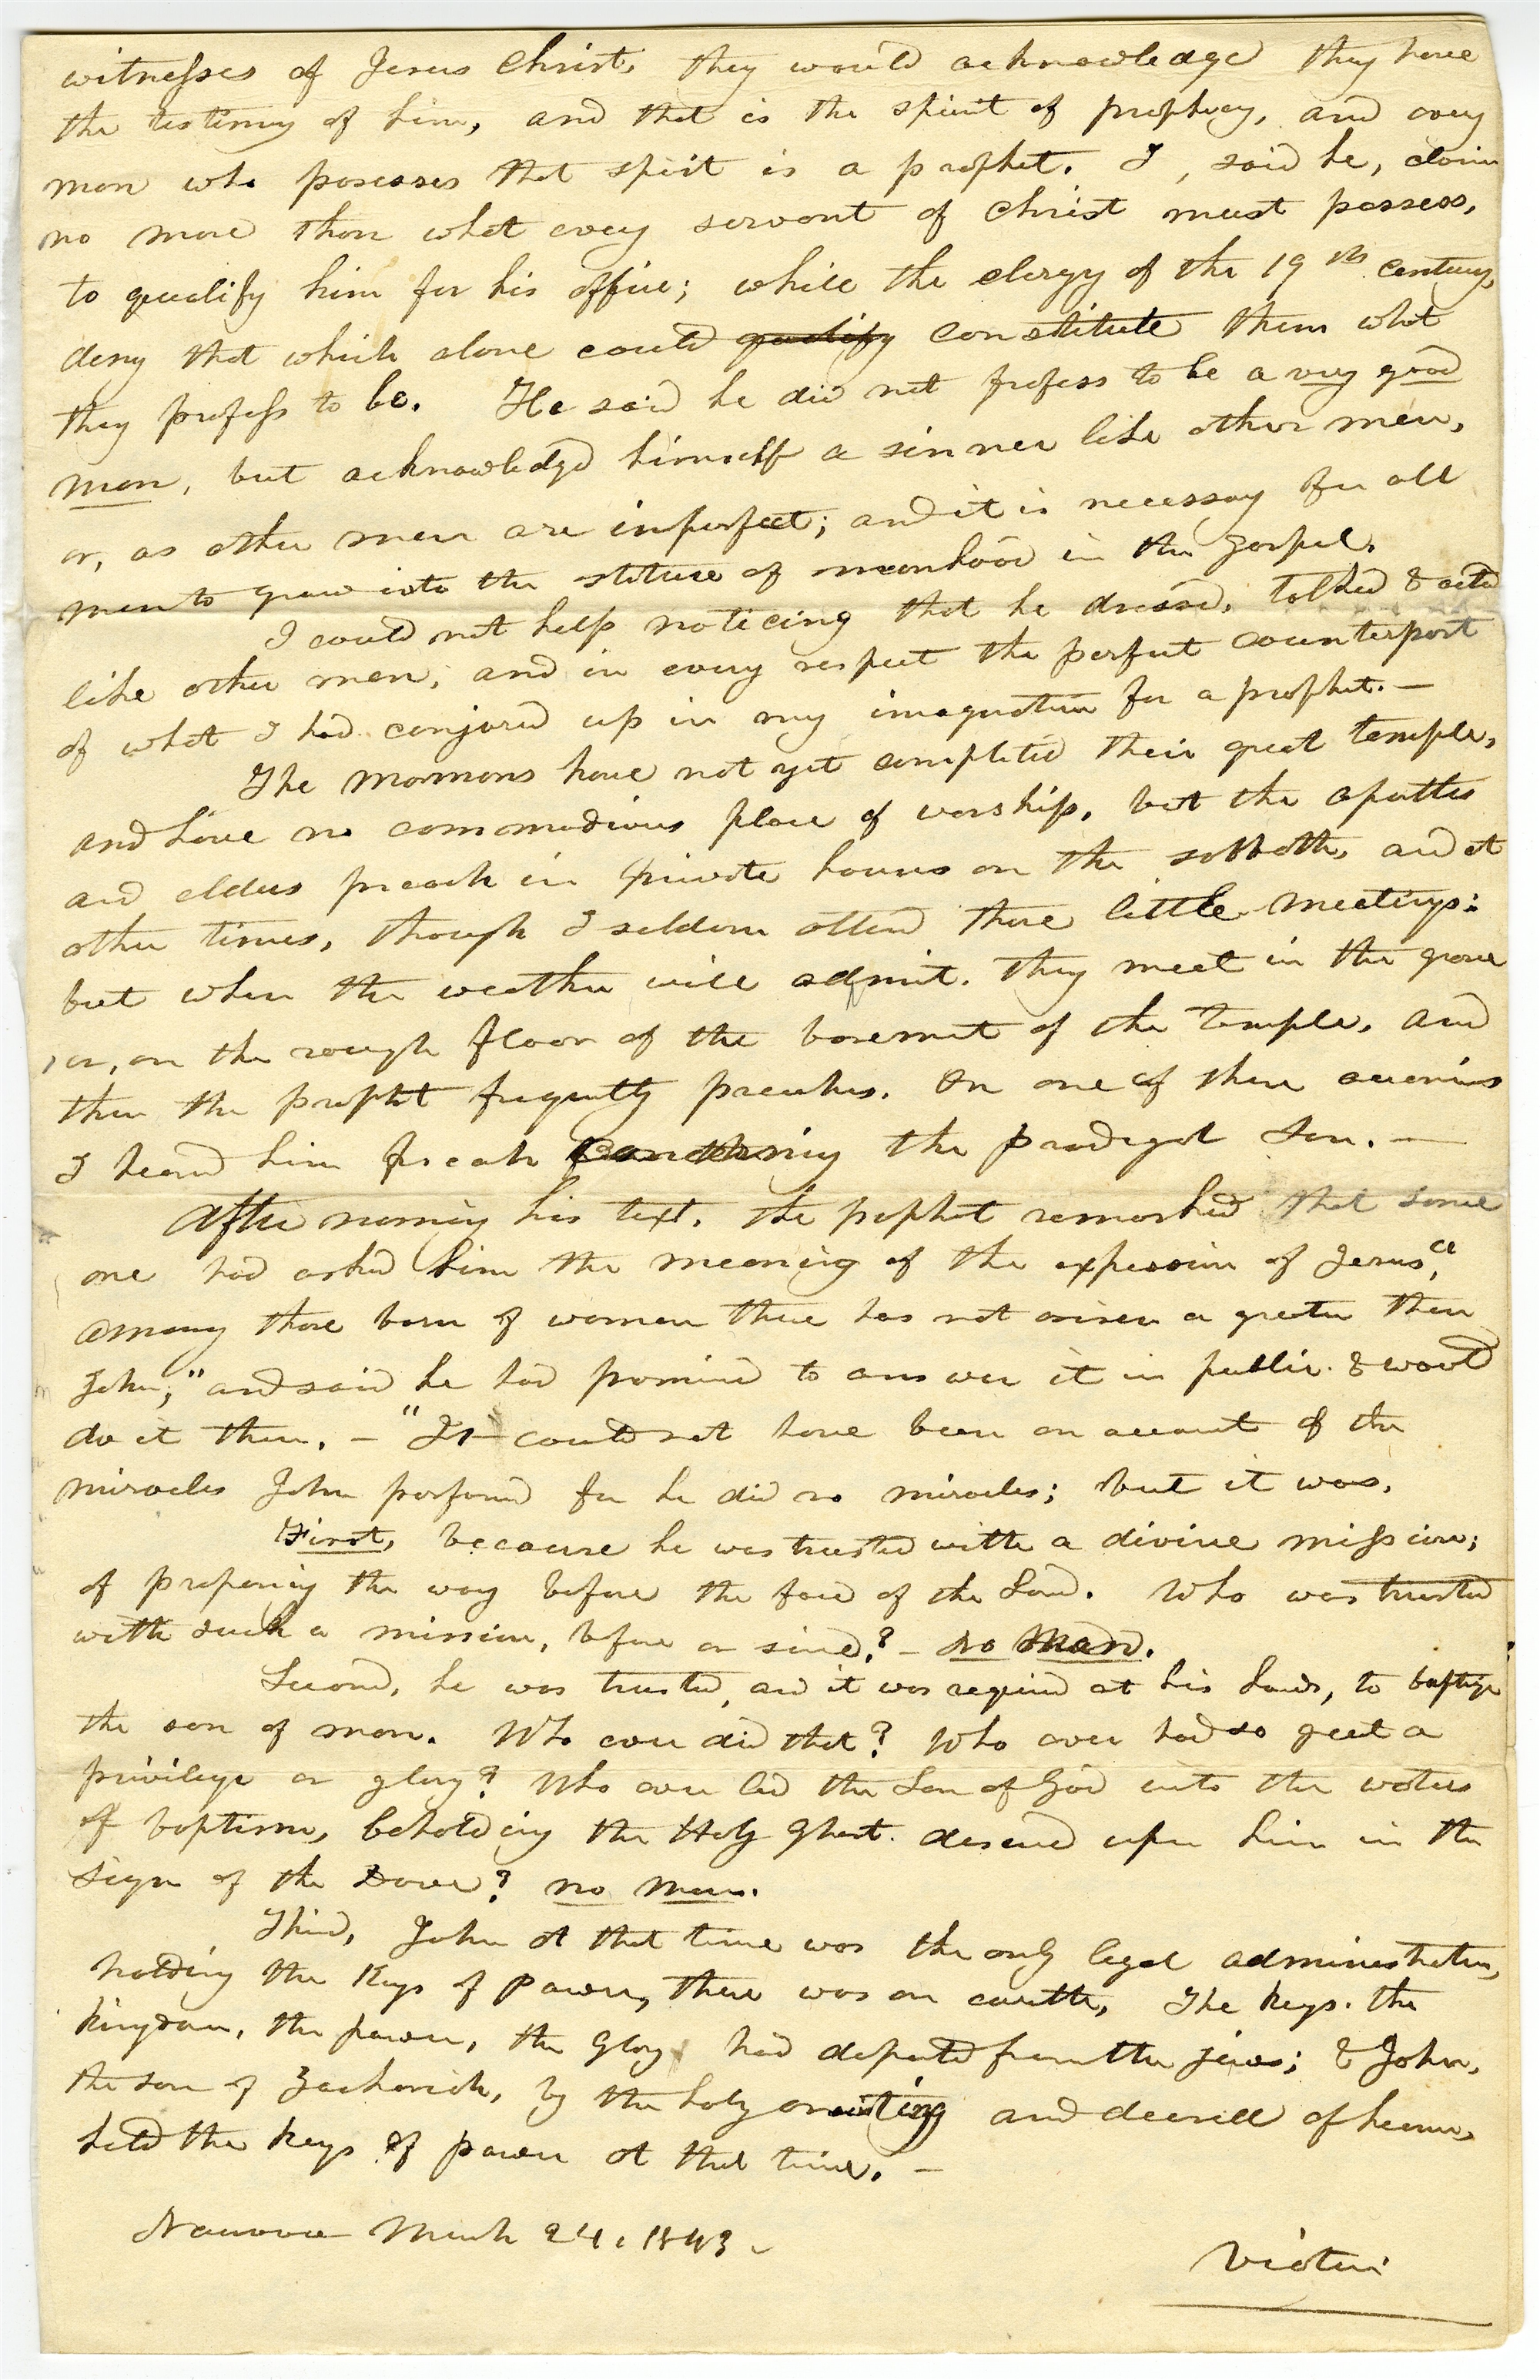 witnesses of Jesus Christ, they would acknowledge they have
the testimny of him, and that is the spirit of prophecy, and every
man who posesses that spirit is a prophet. I, said he, claim
no more than what every servant of Christ must possess,
to qualify him for his office; while the clergy of the 19th century,
deny that which alone could qualify constitute them what
they profess to be. He said he did not profess to be a very good
man, but acknowledgd himself a sinner like other men,
or, as other men are inperfect; and it is necessary for all
men to grow into the stature of manhood in the gospel.
I could not help noticing that he dressed, talked & acted
like other men; and in every respect the perfect counterpart
of what I had conjured up in my imagination for a prophet. —
The mormons have not yet completed their great temple,
and have no commodious place of worship, but the apostles
and elders preach in private houses on the sabbath, and at
other times, though I seldom attend these little meetings:
but when the weather will admit. they meet in the grove
or, on the rough floor of the basement of the temple. and
then the prophet frequently preaches. On one of these occasions
I heard him preach concerning the prodigal son. —
After naming his text. the prophet remarked that some
one had asked him the meaning of the expression of Jesus, "
among those born of women there has not arisen a greater than
John;" and said he had promised to answer it in public. & would
do it then. — "It could not have been on account of the
miracles John performed for he did no miracles; but it was,
First, because he was trusted with a divine mission;
of preparing the way before the face of the Lord. Who was trusted
with such a mission, before or since? — no Man.
Second, he was trusted, and it was required at his hands, to baptize
the son of man. Who ever did that? Who ever had so great a
privilege or glory? Who ever led the Son of God into the waters
of baptism, beholding the Holy Ghost. descend upon him in the
sign of the Dove? no man.
Third, John at that time was the only legal administrator,
holding the keys of power, there was on earth, The keys. the
kingdom, the power, the glory had departed from the jews; & John,
the son of Zachariah, by the holy anointing and decree of heaven,
held the keys of power at that time. —
Nauvoo March 24, 1843.